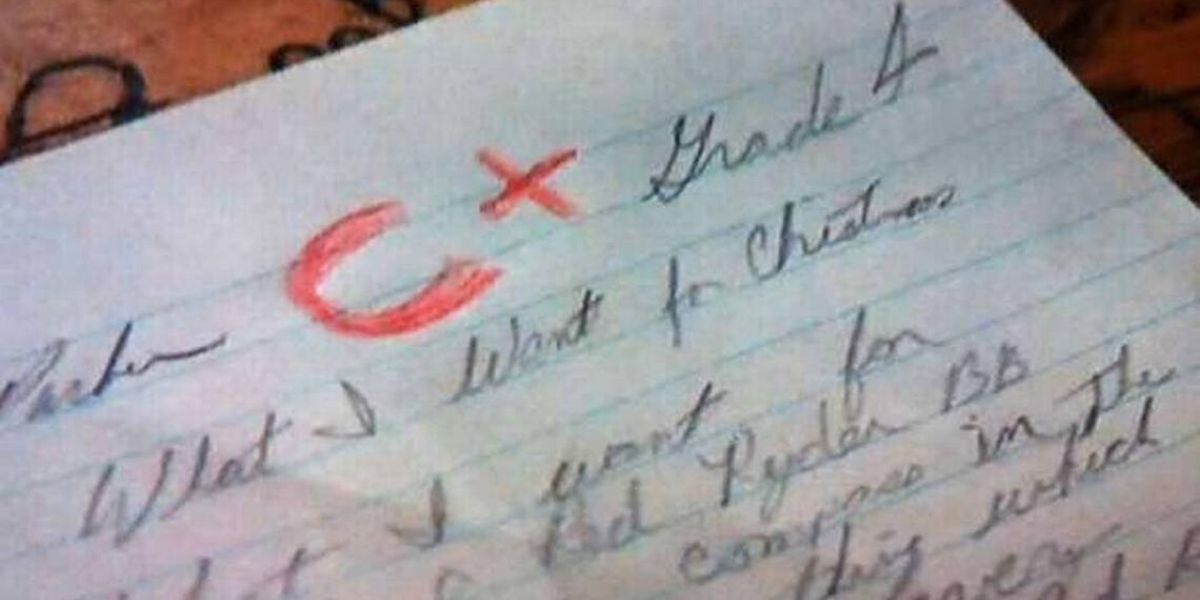 C+ Grade 4
Parker
What I Want for Christmas
What I want for
Red Ryder BB
compass in the
this which